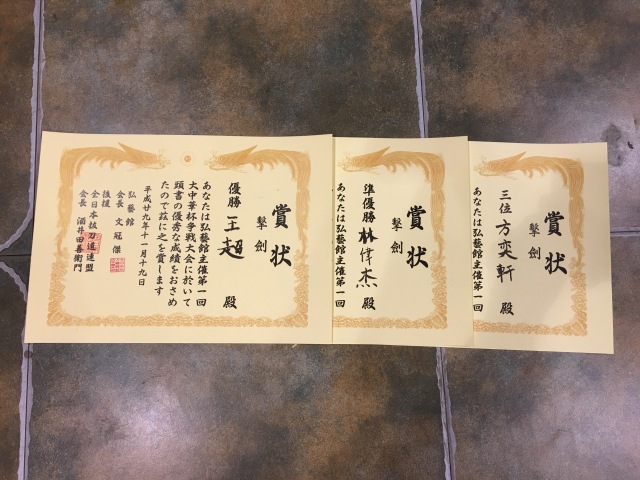 賞状
撃劍
優勝 王超 殿
あなたは弘藝館主催第一回
大中華杯争戦大会に於いて
頭書の優秀な成績をおさめ
たので茲に之を賞します
平成廿九年十一月十九日
弘藝館
会長 文冠傑
後援
全日本抜刀道連盟
会長 酒井田善衛門
賞状
撃劍
準優勝 林偉杰 殿
あなたは弘藝館主催第一回
賞状
撃劍
三位 方奕軒 殿
あなたは弘藝館主催第一回